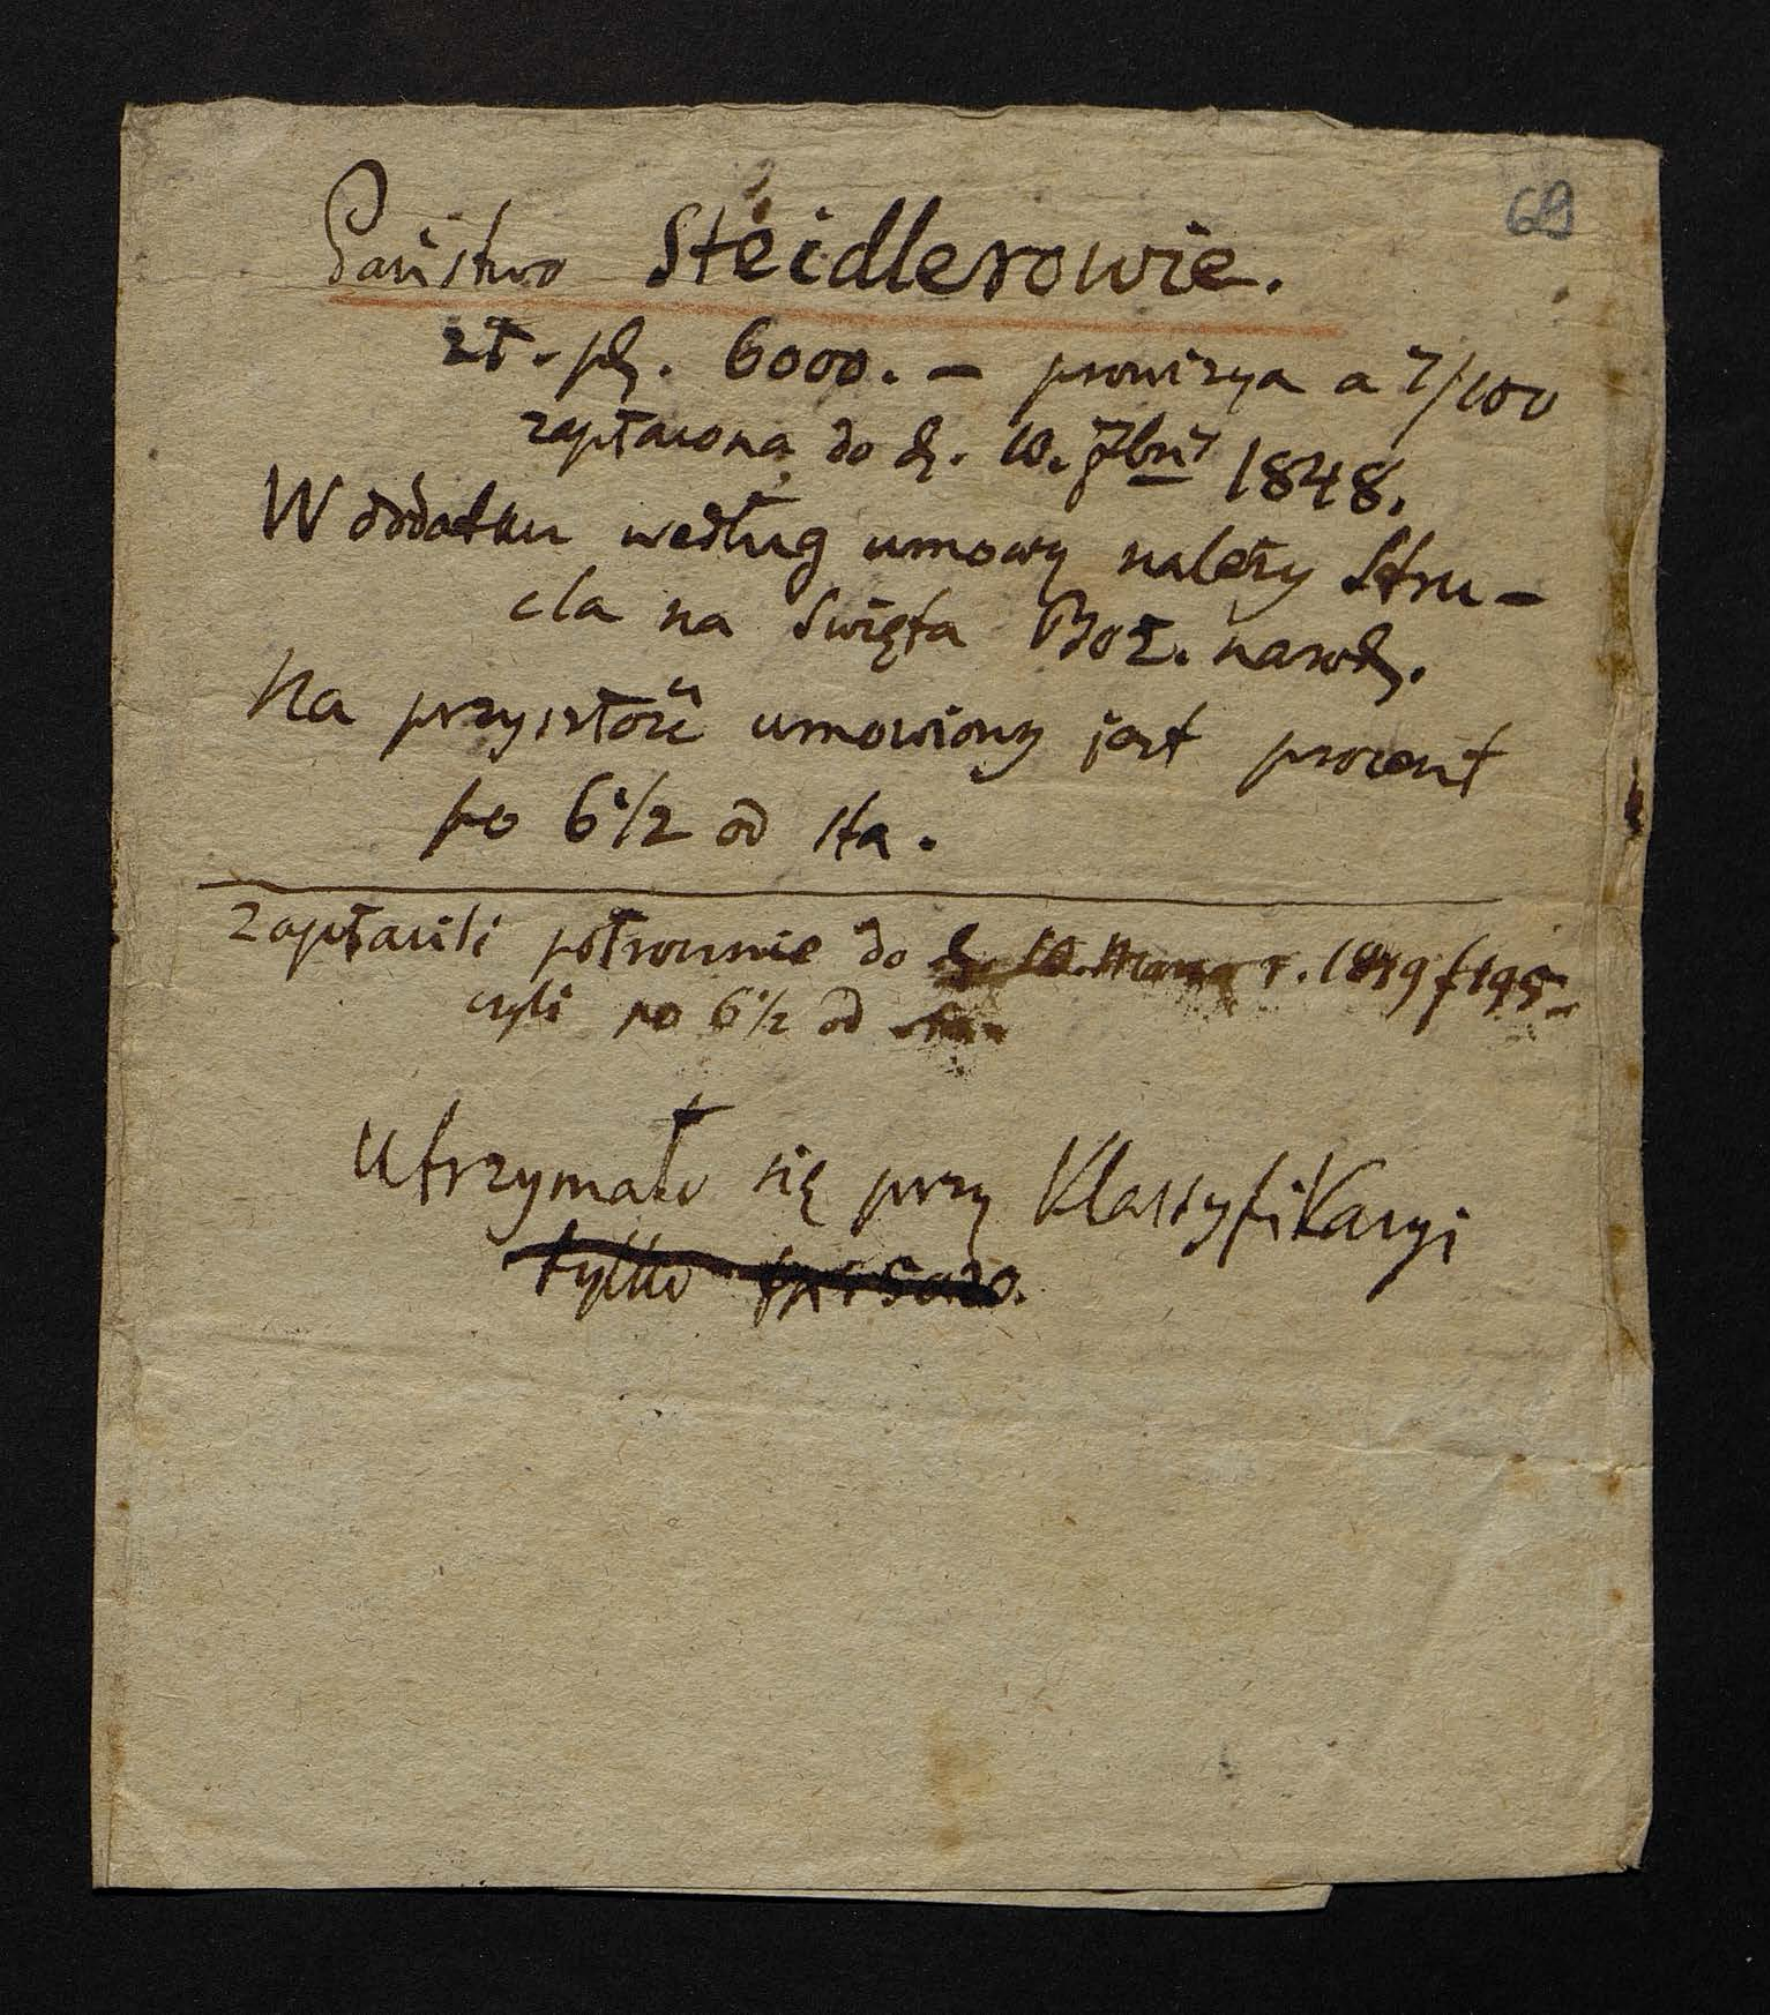 69
Państwo Steidlerowie.
zł. pl. 6000. – prowizya a 7/100
zapłacona do d. 10. 7bris 1848.
W dodatku według umowy należy Stru-
cla na Swięta Boż. narodz.
Na przyszłość umowiony jest procent
po 6 1/2 od sta.
Zapłacili połrocznie do d. 10. Marca r. 1849 f 195–
czyli po 6 1/2 od sta.
Utrzymało się przy Klassyfikacyi
tylko